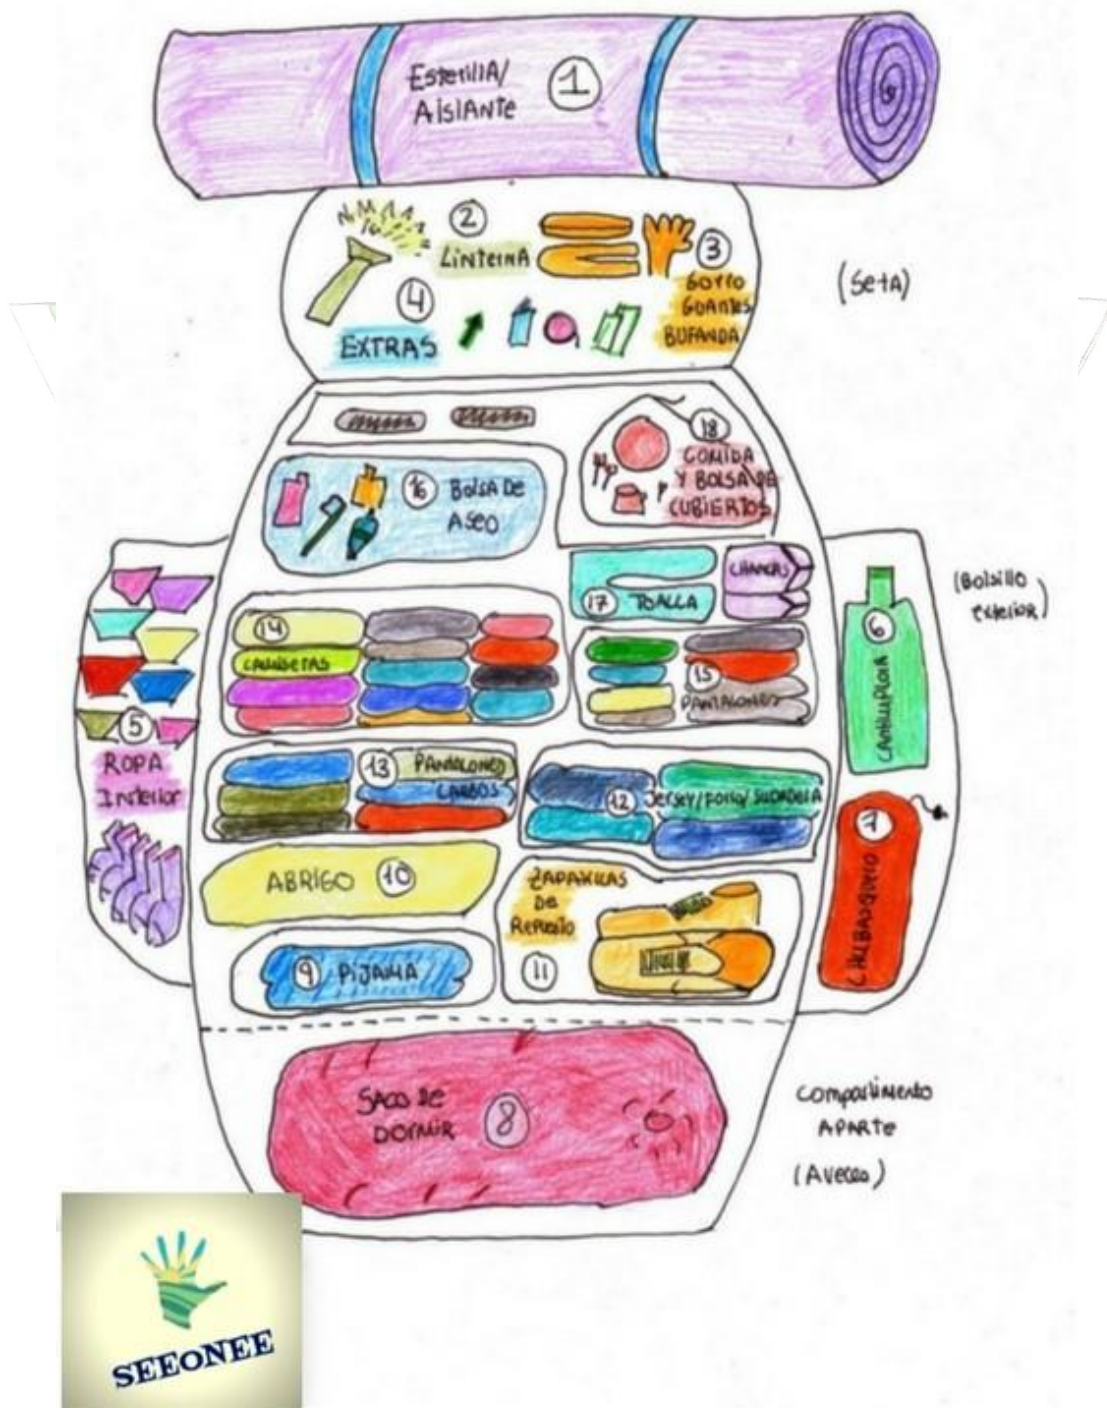 Esterilla/
Aislante
1
2
Linterna
3
Gorro
Guantes
Bufanda
4
EXTRAS
(Seta)
18
COMIDA
Y BOLSA DE
CUBIERTOS
16
BOLSA DE
ASEO
CHANCAS
17 TOALLA
(Bolsillo
exterior)
6
CANTIMPLORA
14
CAMISETAS
15
PANTALONES
5
ROPA
Interior
13 PANTALONES
LARGOS
12 Jersey/Forro/SUDADERA
7
CHUBASQUERO
ABRIGO 10
ZAPATILLAS
DE
Repuesto
11
9 PIJAMA
SACO DE
DORMIR 8
Compartimento
APARTE
(A veces)
SEEONEE